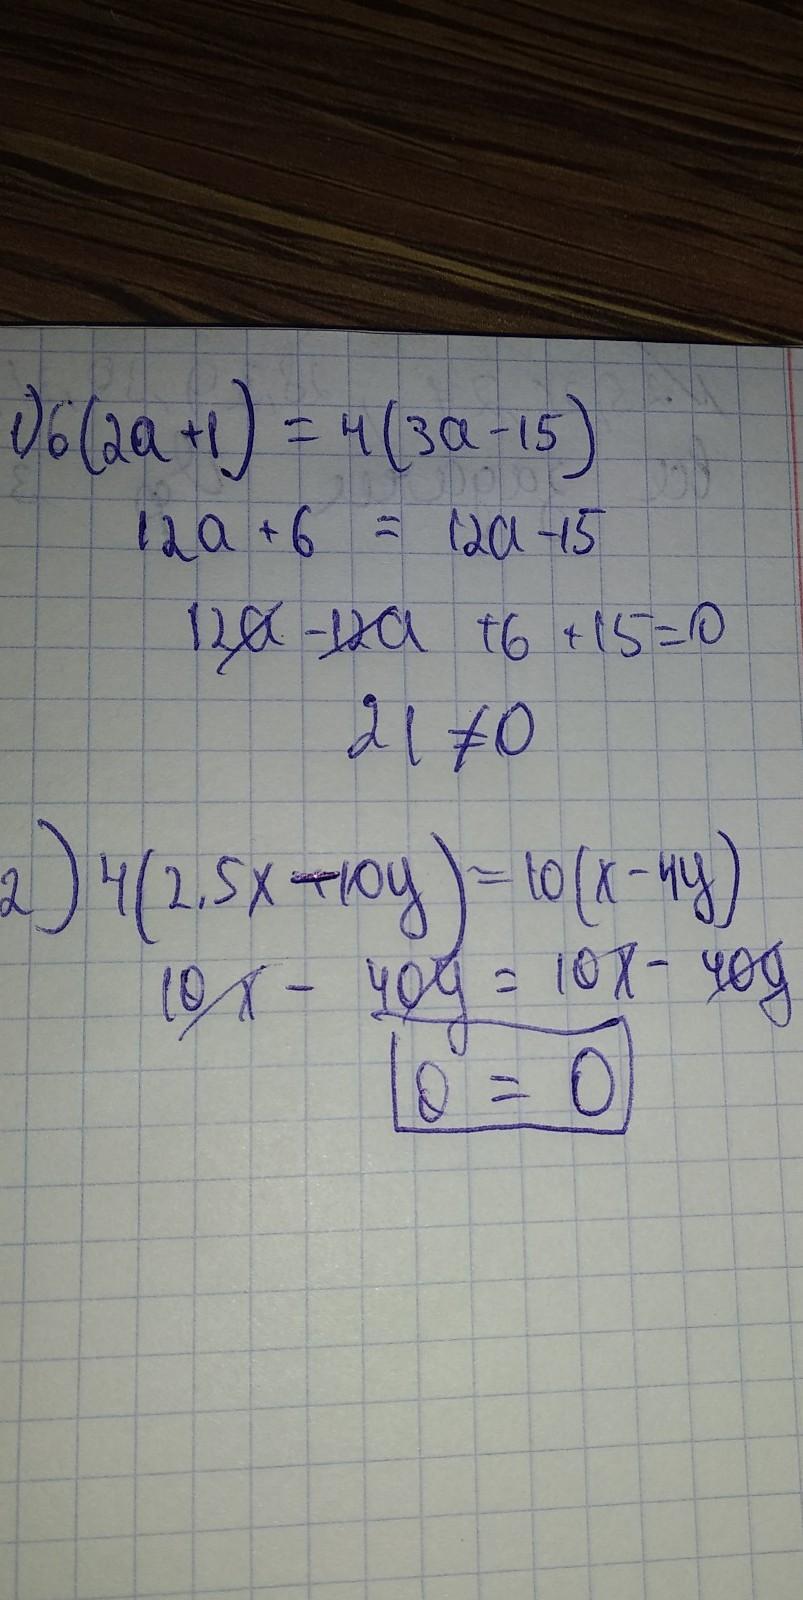 1) 6(2a+1) = 4(3a-15)
12a + 6 = 12a - 15
12a - 12a + 6 + 15 = 0
21 ≠ 0
2) 4(2.5x - 10y) = 10(x - 4y)
10x - 40y = 10x - 40y
0 = 0